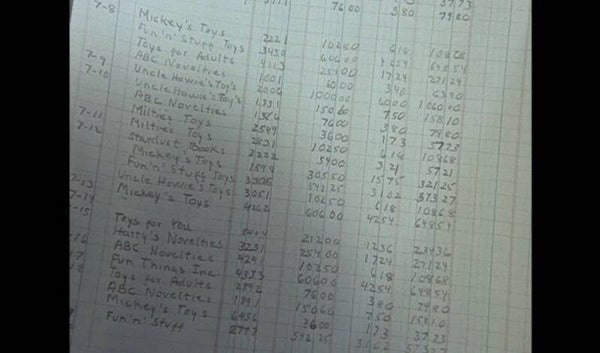 37 73
76 00 3 80 79 80
7-8 Mickey's Toys 2221 102 50 6 18 108 68
Fun 'n' Stuff Toys 3430 606 00 42 54 648 54
Toys for Adults 4113 254 00 17 24 271 24
7-9 ABC Novelties 1001 60 00 3 40 63 40
7-10 Uncle Howie's Toys 2006 1000 00 60 00 1060 00
Uncle Howie's Toys 1331 150 60 7 50 158 10
ABC Novelties 76 00 3 80 79 80
7-11 Milties Toys 2549 36 00 1 73 37 73
7-12 Milties Toys 2831 102 50 6 18 108 68
Stardust Books 2222 54 00 3 21 57 21
Mickey's Toys 1899 305 50 15 75 321 25
Fun 'n' Stuff Toys 3305 542 25 31 02 573 27
7-13 Uncle Howie's Toys 3051 102 50 6 18 108 68
7-14 Mickey's Toys 4262 606 00 42 54 648 54
-15
Toys for You 212 00 12 36
-16 Harry's Novelties 3231 254 00 17 24 271 24
ABC Novelties 424 102 50 6 18 108 68
Fun Things Inc 4333 606 00 42 54 648 54
Toys for Adults 2892 76 00 3 80 79 80
ABC Novelties 1891 150 60 7 50 158 10
Mickey's Toys 6456 36 00 1 73 37 73
Fun 'n' Stuff 2777 542 25 31 02 573 27